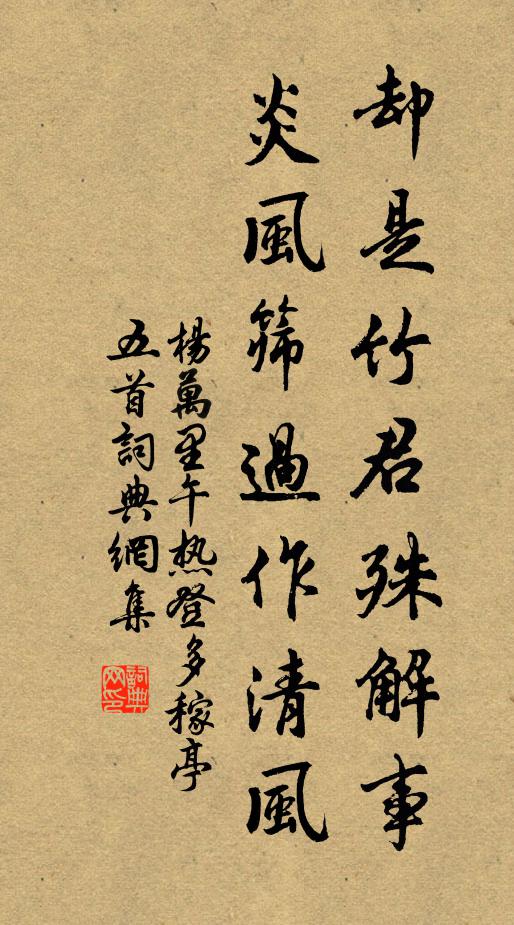 却是竹君殊解事
炎風篩過作清風
楊萬里午热登多稼亭
五首詞典網集
詞典网印